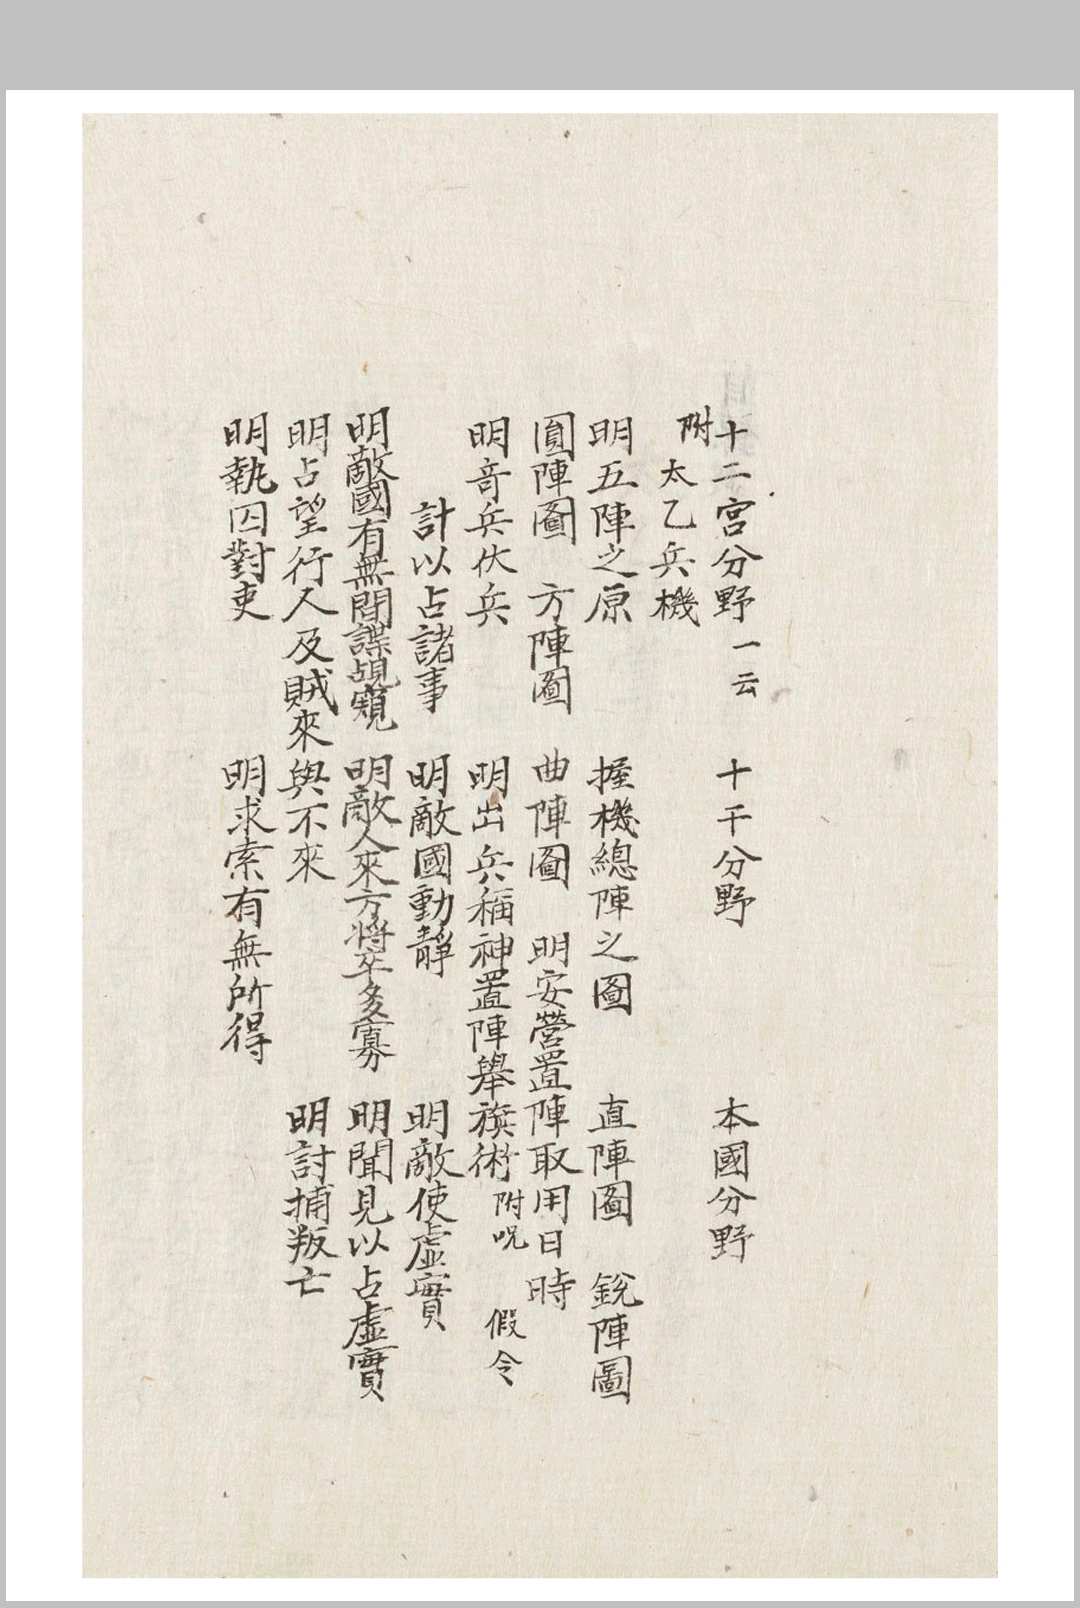 十二宮分野一云　十干分野　本國分野
附太乙兵機
明五陣之原　握機總陣之圖　直陣圖　銳陣圖
圓陣圖　方陣圖　曲陣圖　明安營置陣取用日時
明竒兵伏兵　明出兵稱神置陣舉旗術附呪　假令
計以占諸事　明敵國動靜　明敵使虛實
明敵國有無間諜覘窺　明敵人來方將卒多寡　明聞見以占虛實
明占望行人及賊來與不來　明討捕叛亡
明執囚對吏　明求索有無所得